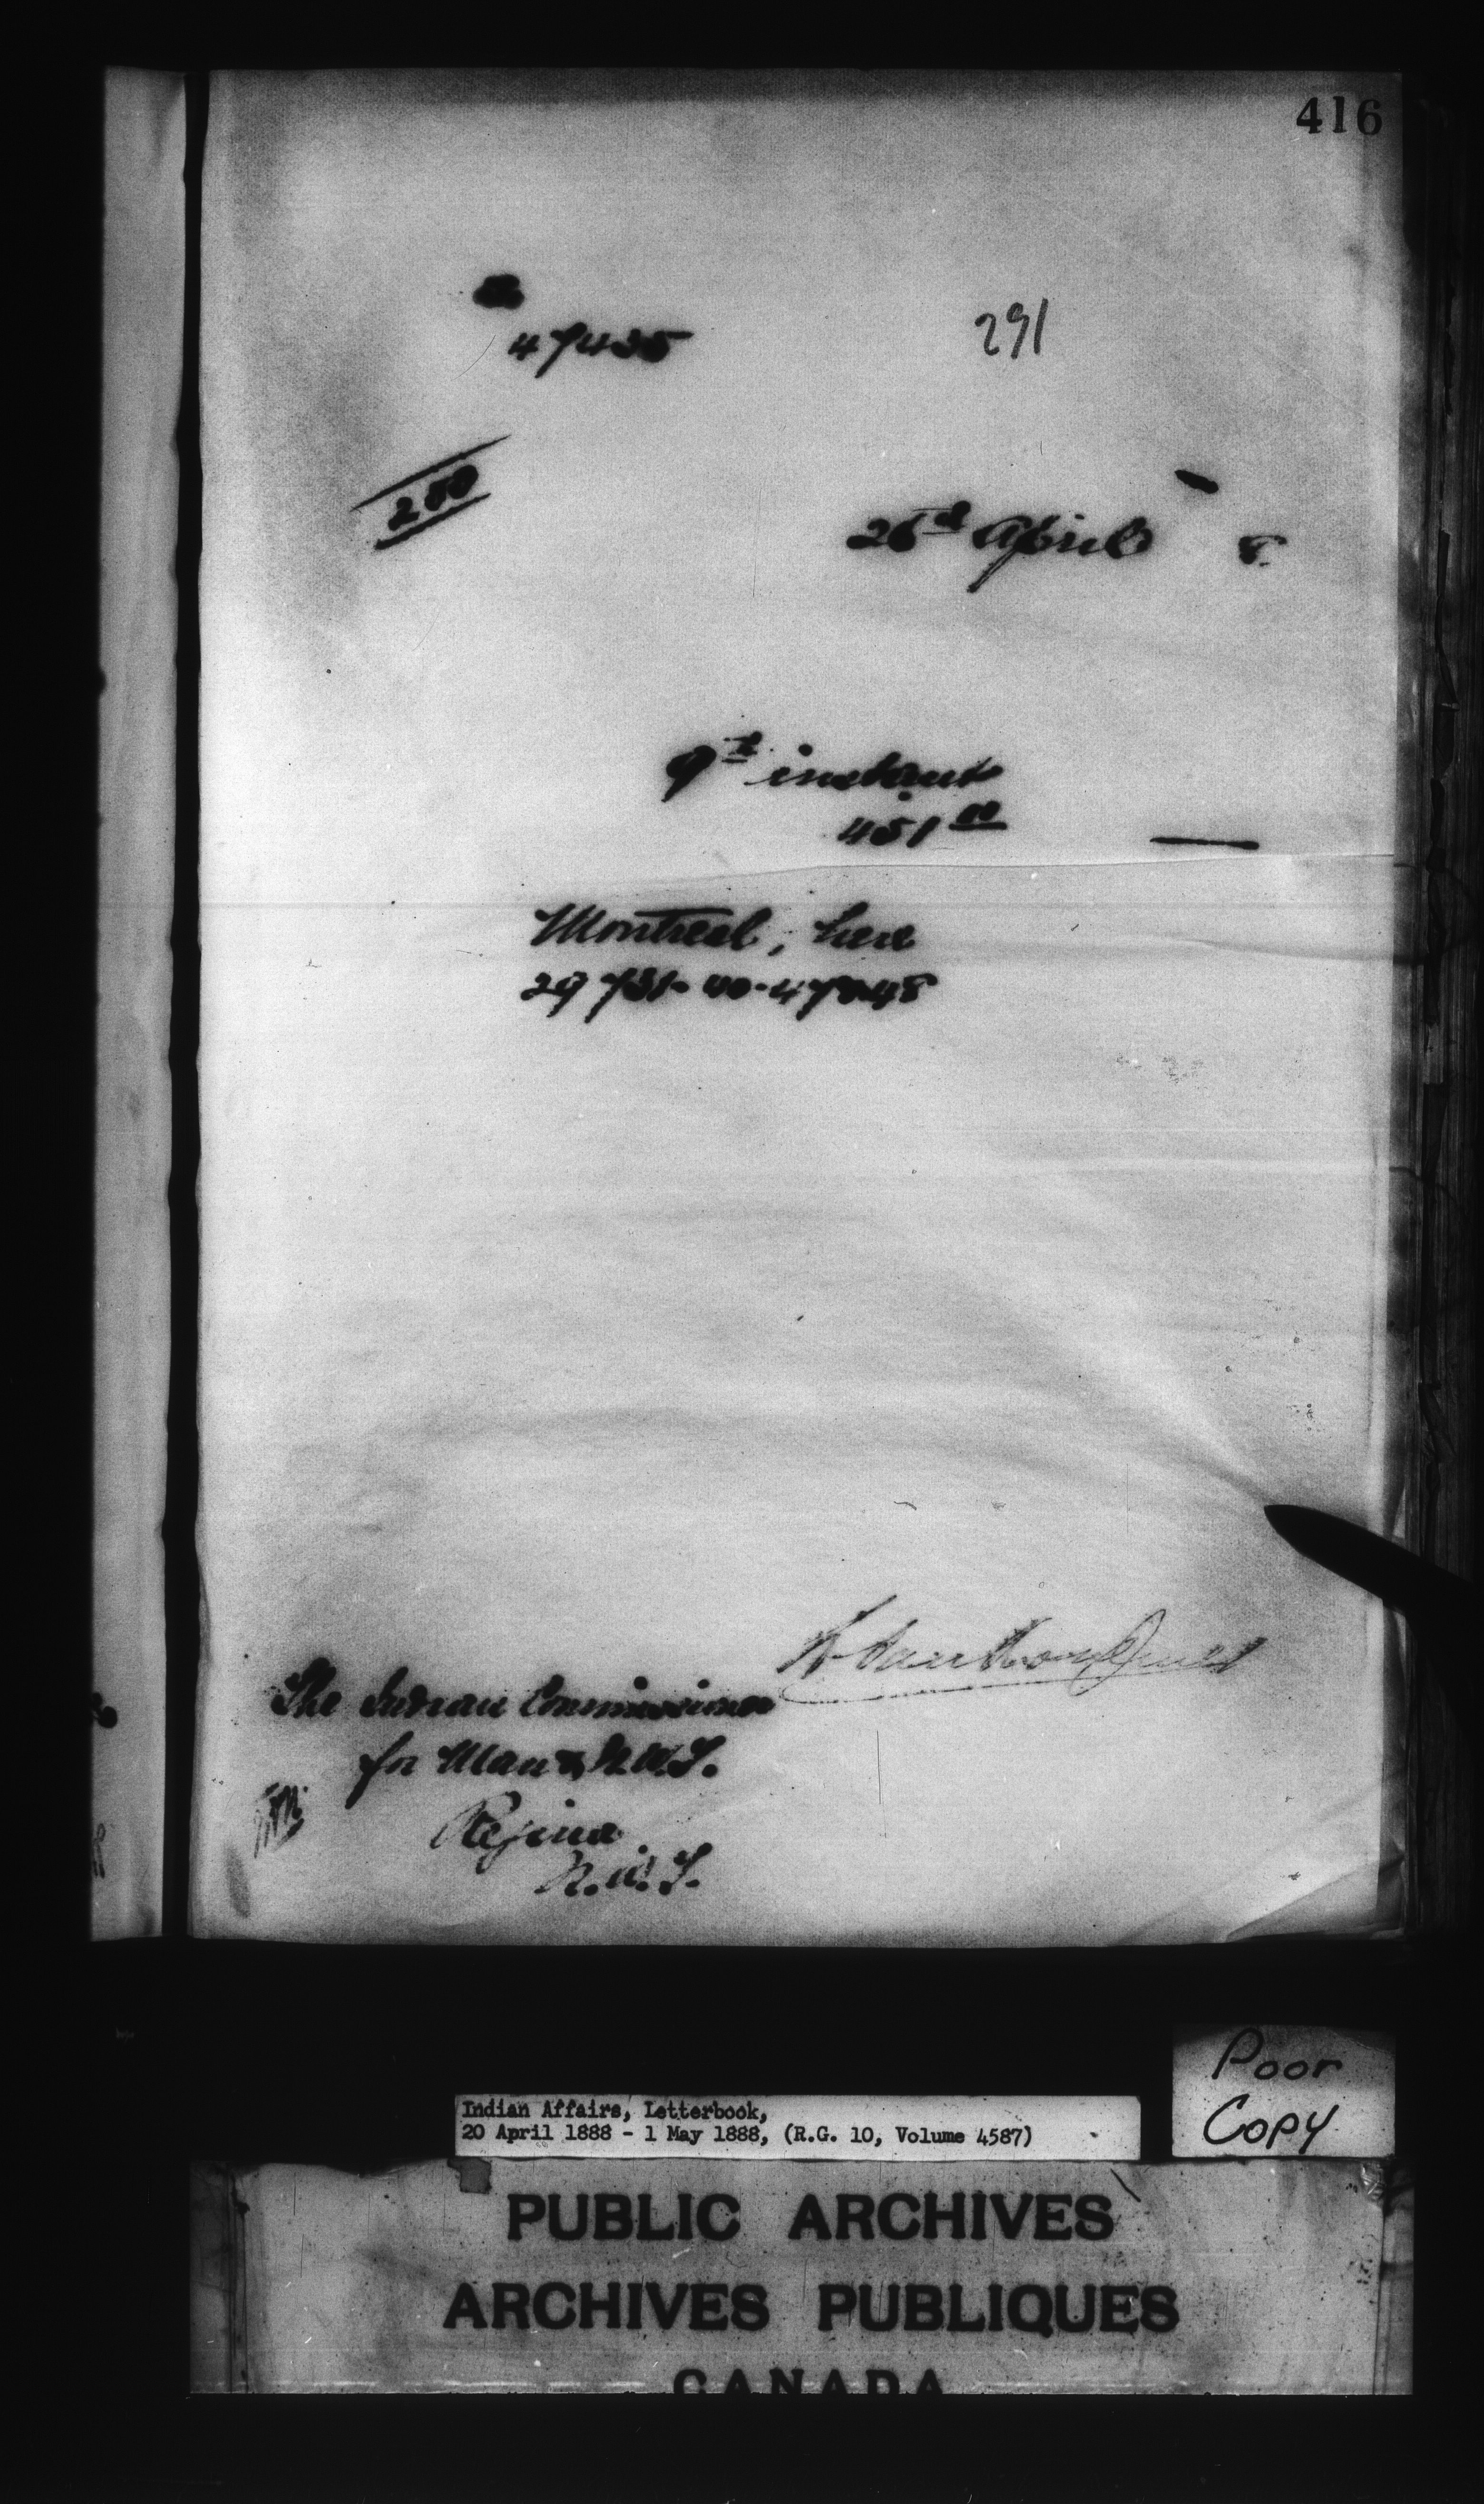 416
291
47435
200
26th April 8.
9th instant
451 00
Montreal, here
29731-40-47848
The Indian Commissioner
for Man & N.W.T.
Regina
N.W.T.
Poor
Copy
Indian Affairs, Letterbook,
20 April 1888 - 1 May 1888, (R.G. 10, Volume 4587)
PUBLIC ARCHIVES
ARCHIVES PUBLIQUES
CANADA